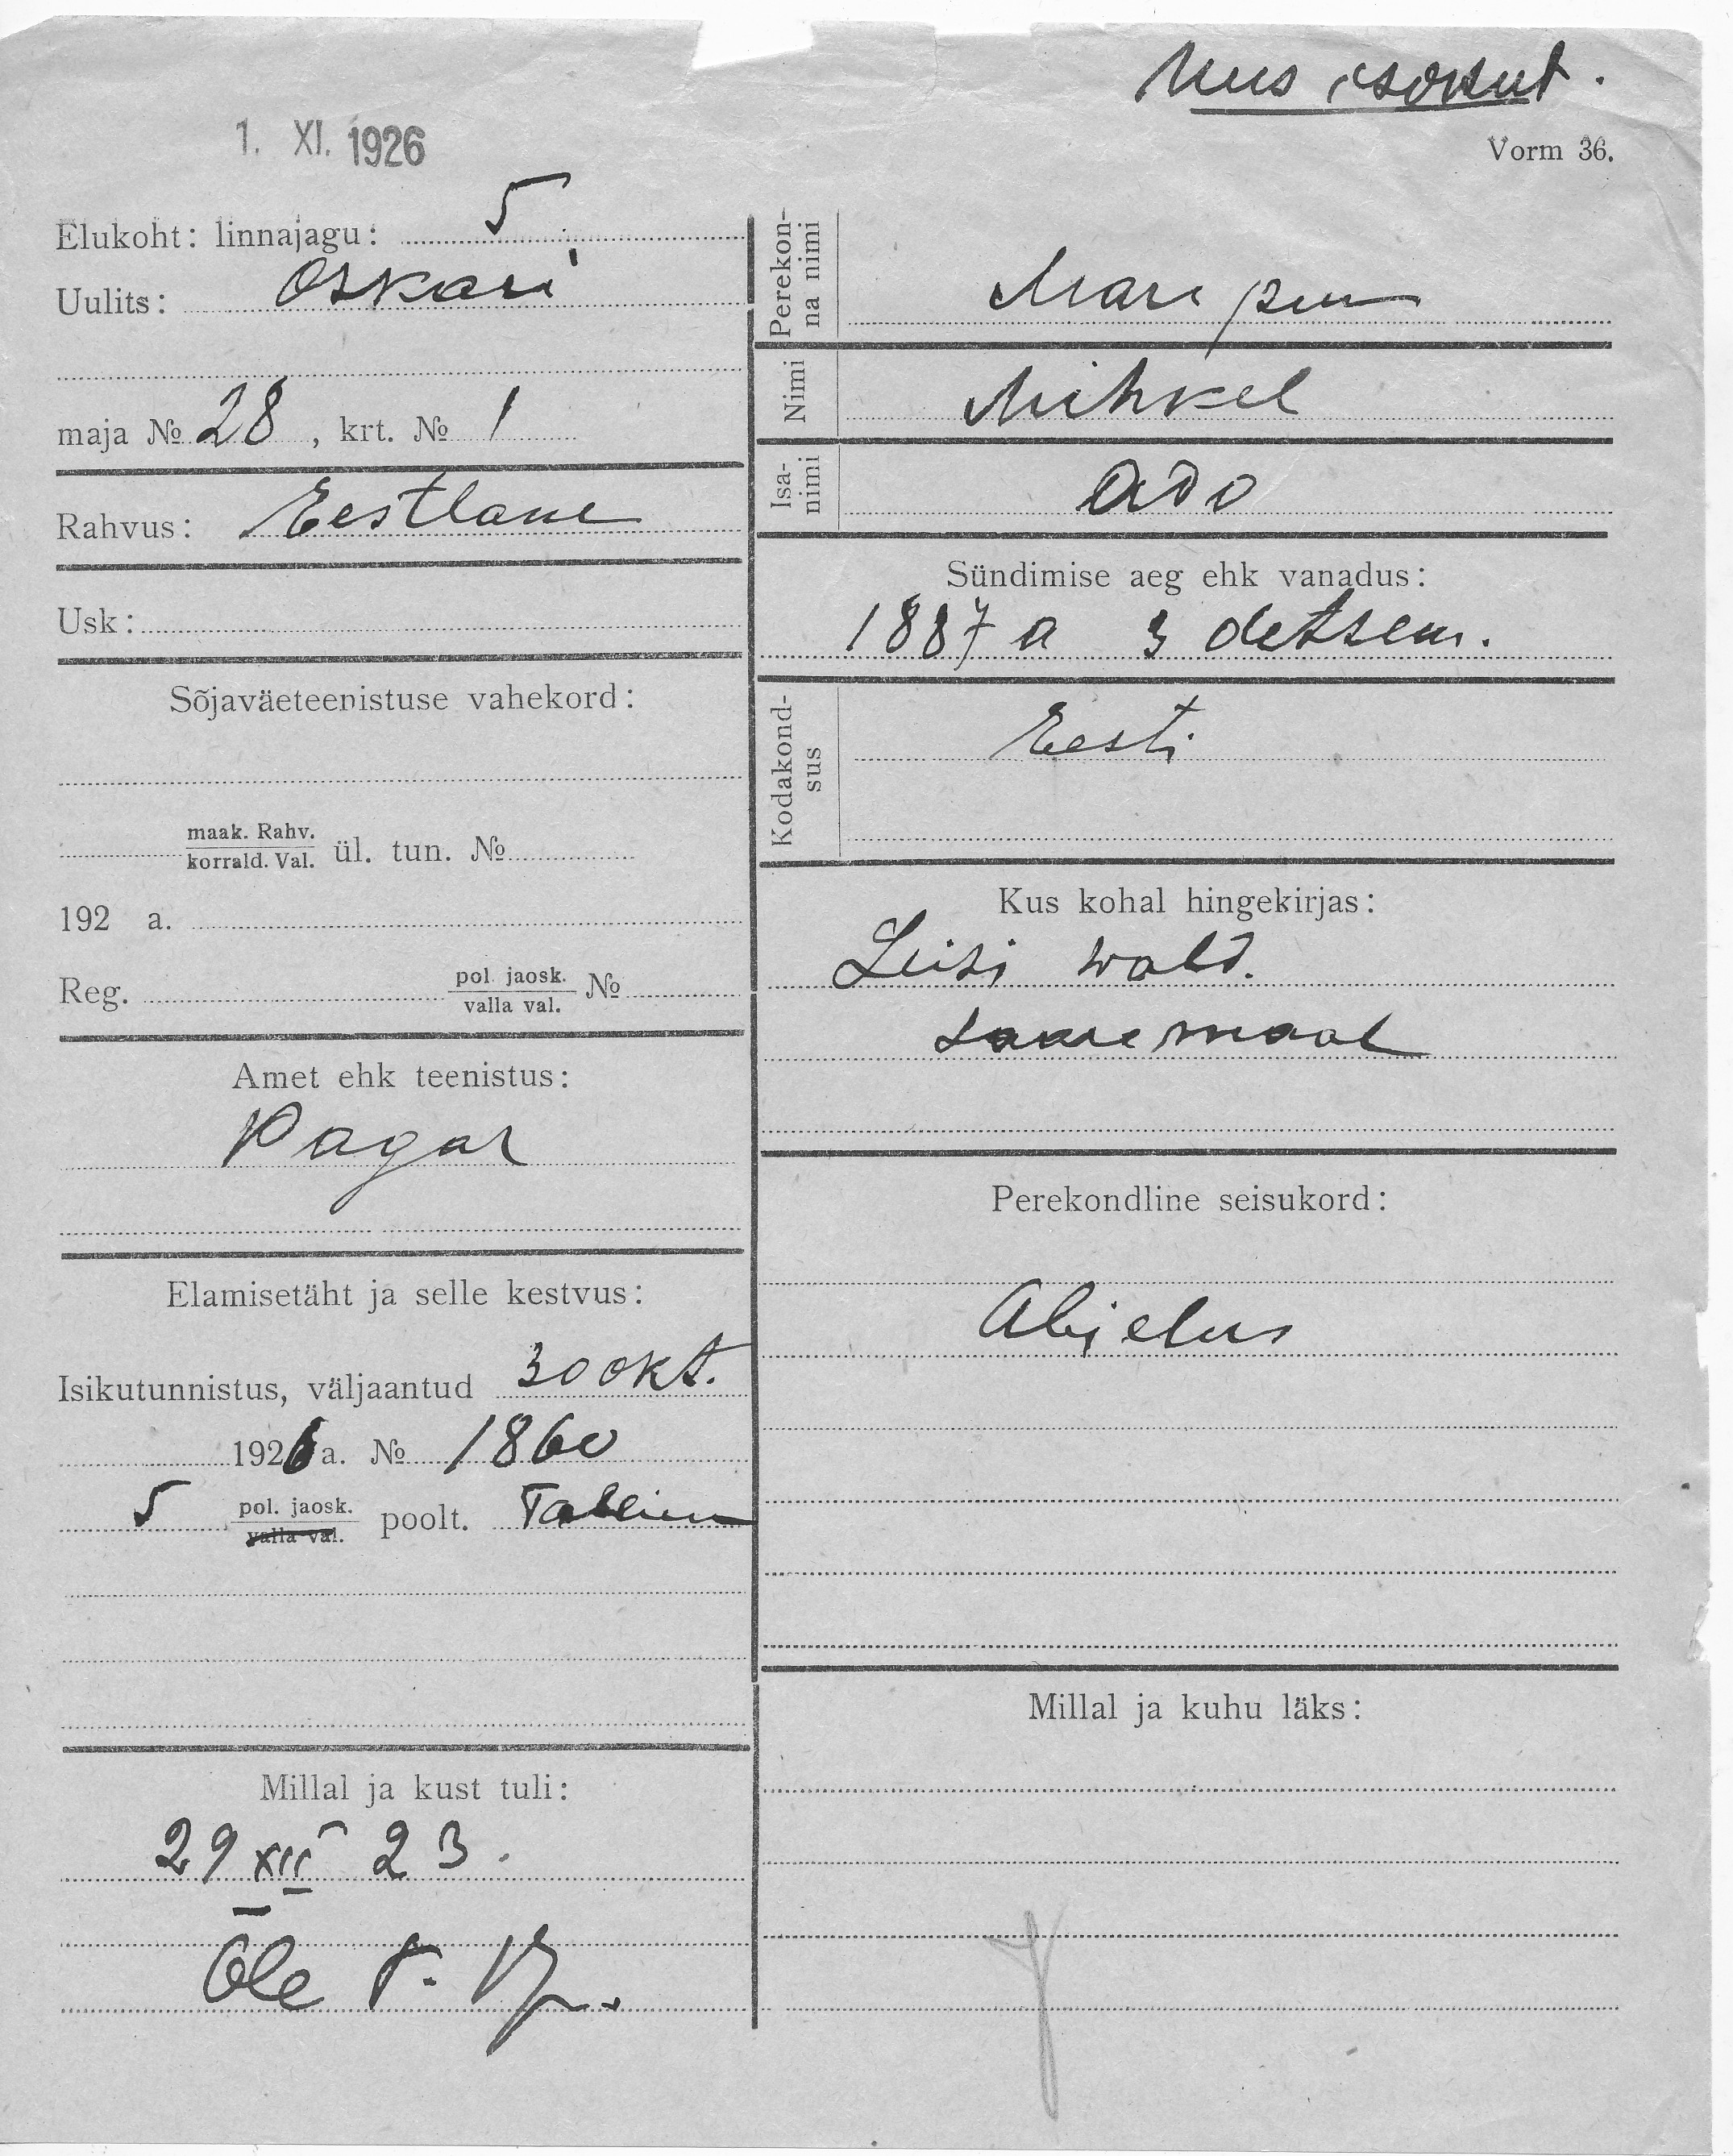 Uus isokut.
1. XI. 1926
Vorm 36.
Elukoht: linnajagu: 5
Uulits: Oskari
maja № 28, krt. № 1
Rahvus: Eestlane
Usk:
Sõjaväeteenistuse vahekord:
maak. Rahv.
korrald. Val. ül. tun. №
192 a.
Reg. pol. jaosk. №
valla val.
Amet ehk teenistus:
Pagar
Elamisetäht ja selle kestvus:
Isikutunnistus, väljaantud 30 okt.
1926 a. № 1860
5 pol. jaosk. poolt. Tallinn
valla val.
Millal ja kust tuli:
29 XII 23.
Üle
Perekon-
na nimi
Maripuu
Nimi
Mihkel
Isa-
nimi
Ado
Sündimise aeg ehk vanadus:
1887 a 3 detsem.
Kodakond-
sus
Eesti
Kus kohal hingekirjas:
Leisi wald.
Saaremaal
Perekondline seisukord:
Abielus
Millal ja kuhu läks: